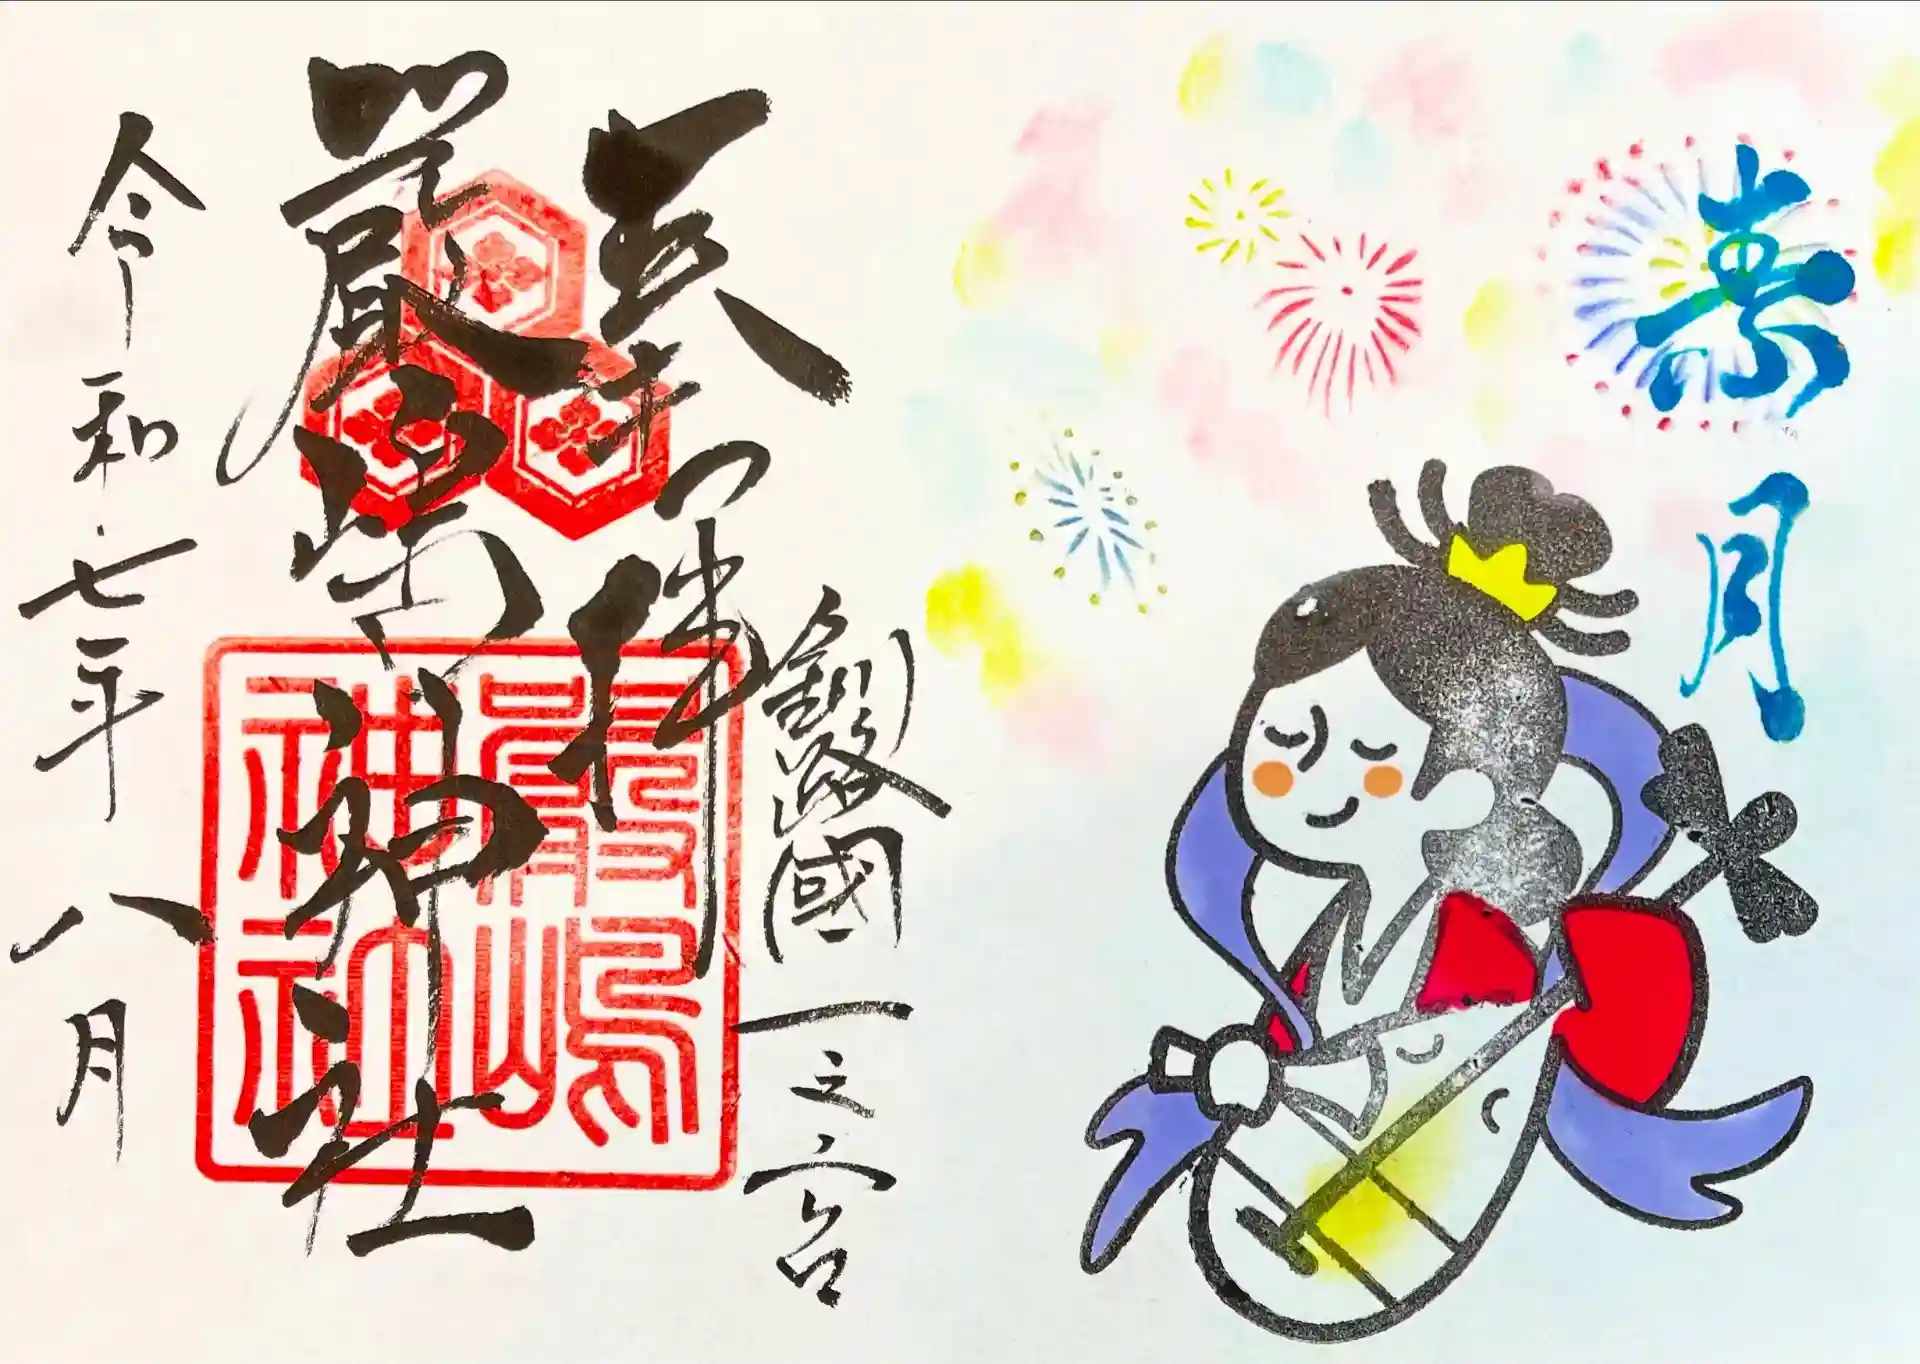 素月
釧路國一之宮
奉拝
嚴島神社
嚴嶋
神社
令和七年八月